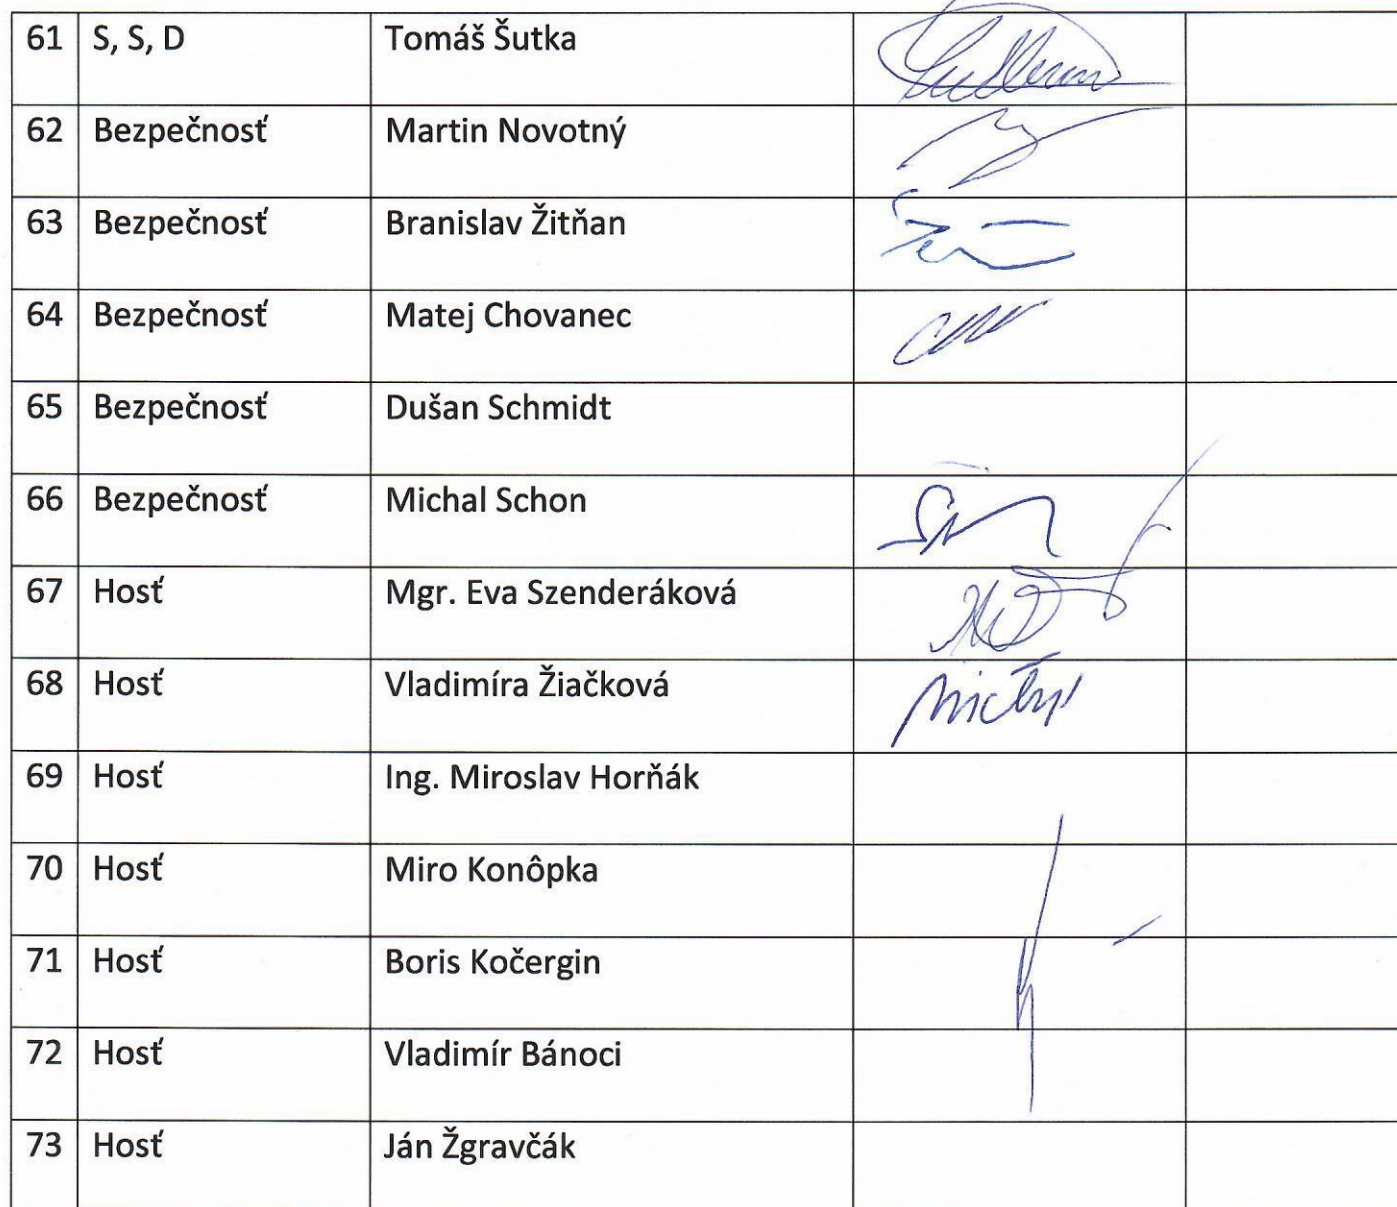 61 S, S, D Tomáš Šutka
62 Bezpečnosť Martin Novotný
63 Bezpečnosť Branislav Žitňan
64 Bezpečnosť Matej Chovanec
65 Bezpečnosť Dušan Schmidt
66 Bezpečnosť Michal Schon
67 Hosť Mgr. Eva Szenderáková
68 Hosť Vladimíra Žiačková
69 Hosť Ing. Miroslav Horňák
70 Hosť Miro Konôpka
71 Hosť Boris Kočergin
72 Hosť Vladimír Bánoci
73 Hosť Ján Žgravčák